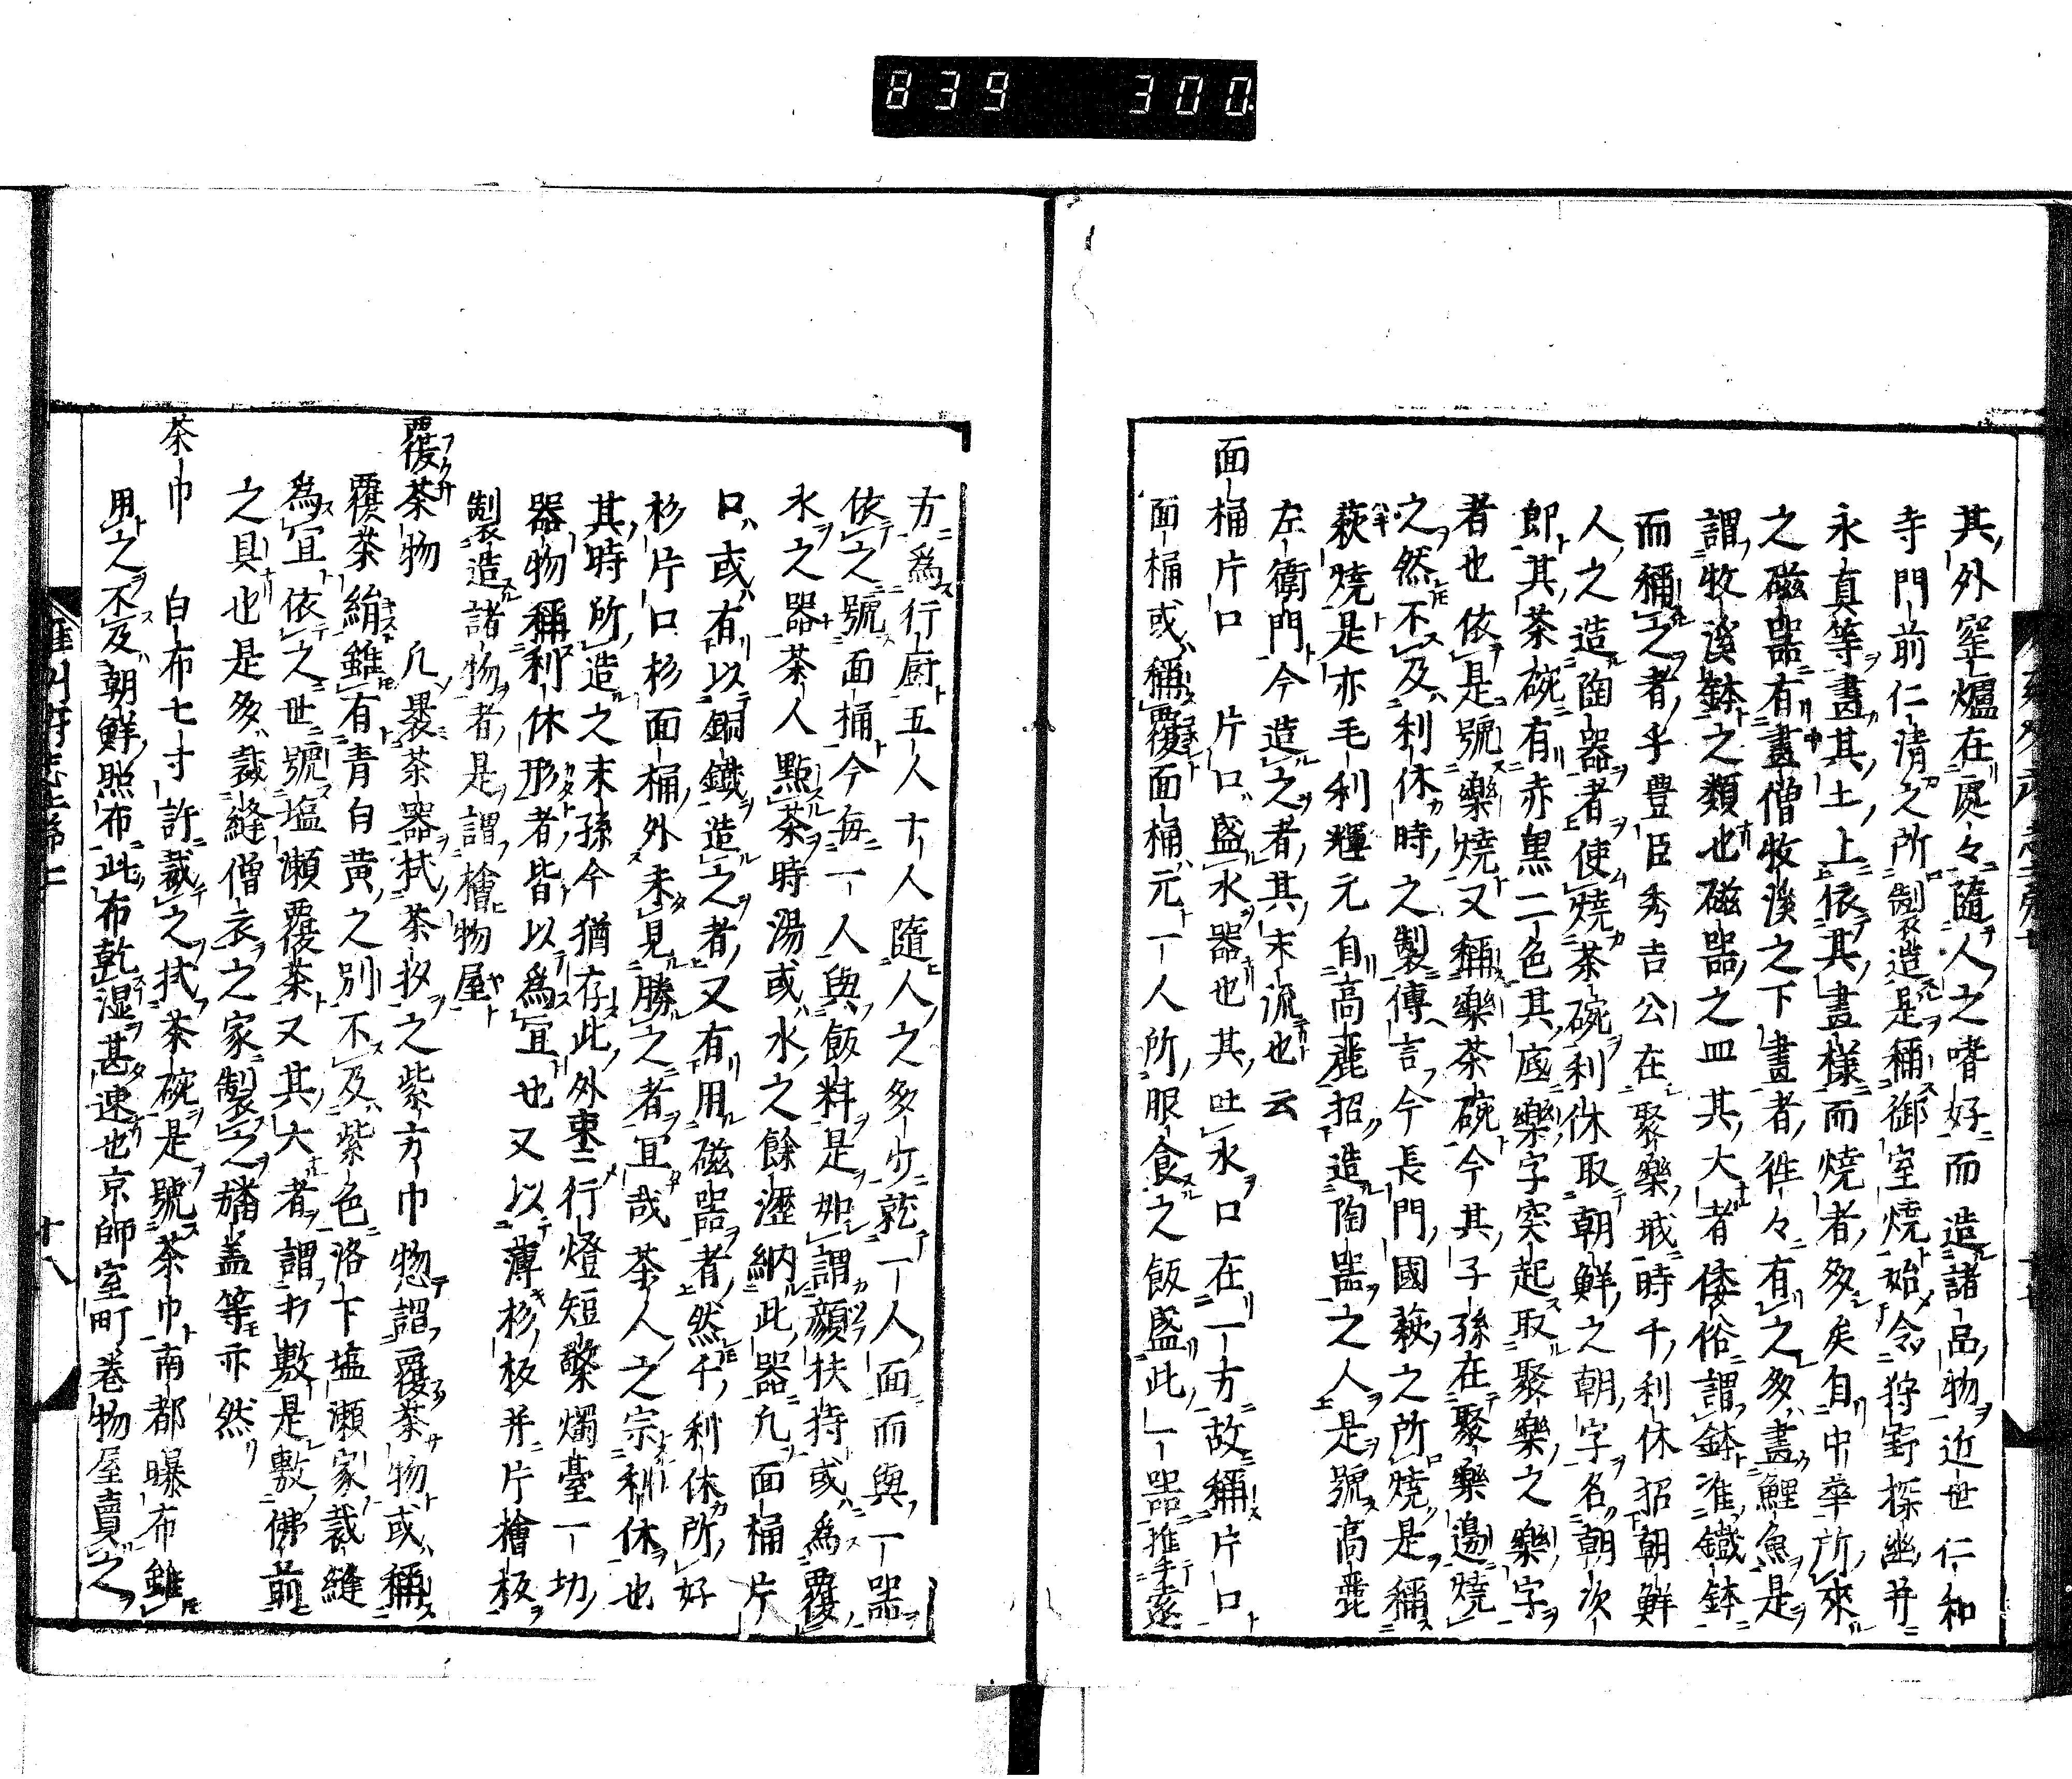 839 300
其外窐爐在處々隨人之嗜好而造諸品物近世仁和
寺門前仁清之所製造是稱御室燒始令狩野探幽并
永真等畫其土上依其畫樣而燒者多矣自中華所來
之磁器有畫僧牧溪之下畫者徃々有之多畫鯉魚是
謂牧溪鉢之類也磁器之皿其大者倭俗謂鉢准鐵鉢
而稱之者乎豊臣秀吉公在聚樂城時千利休招朝鮮
人之造陶器者使燒茶碗利休取朝鮮之朝字名朝次
郎其茶碗有赤黒二色其底樂字突起取聚樂之樂字
者也依是號樂燒又稱樂茶碗今其子孫在聚樂邊燒
之然不及利休時之製傳言今長門國萩之所燒是稱
萩燒是亦毛利輝元自高麗招造陶器之人是號高麗
左衛門今造之者其末流也云
面桶片口 片口盛水器也其吐水口在一方故稱片口
面桶或稱覆面桶元一人所服食之飯盛此一器推手遠
方爲行厨五人十人隨人之多少乾一人面而與一器
依之號面桶今毎一人與飯料是如謂顔扶持或爲覆
水之器茶人點茶時湯或水之餘瀝納此器凢面桶片
口或有以銅鐵造之者又有用磁器者然千利休所好
杉片口杉面桶外未見勝之者宜哉茶人之宗利休也
其時所造之末孫今猶存此外束行燈短檠燭臺一切
器物稱利休形者皆以爲宜也又以薄杉板并片檜板
製造諸物者是謂檜物屋
覆茶物 凢裹茶器拭茶抄之紫方巾惣謂覆茶物或稱
覆茶絹雖有青白黄之別不及紫色洛下塩瀬家裁縫
爲宜依之世號塩瀬覆茶又其大者謂打敷是敷佛前
之具也是多裁縫僧衣之家製之旙盖等亦然
茶巾 白布七寸許裁之拭茶碗是號茶巾南都曝布雖
用之不及朝鮮照布此布乾湿甚速也京師室町巻物屋賣之
十八